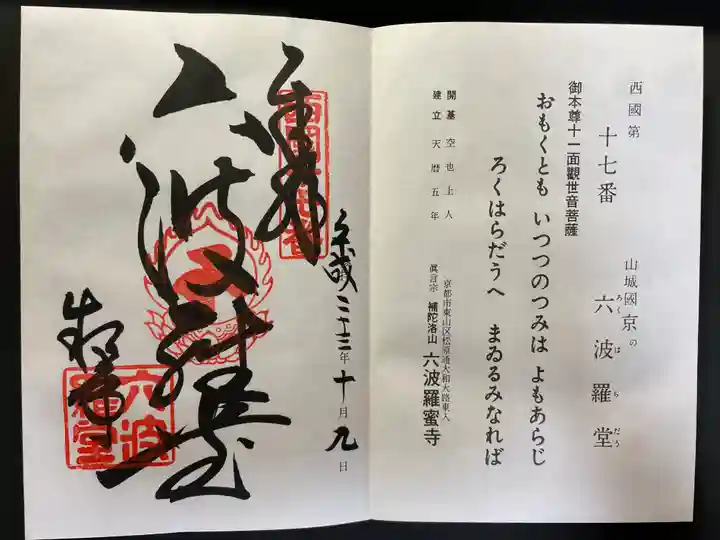 西國第
十七番
山城國京の
六波羅堂
ろくはらだう
御本尊十一面觀世音菩薩
おもくとも いつつのつみは よもあらじ
ろくはらだうへ まゐるみなれば
開基 空也上人
建立 天暦五年
京都市東山区松原通大和大路東入
眞言宗 補陀洛山 六波羅蜜寺
奉拝
西國十七番
平成二十三年十月九日
六波羅堂
六波羅堂